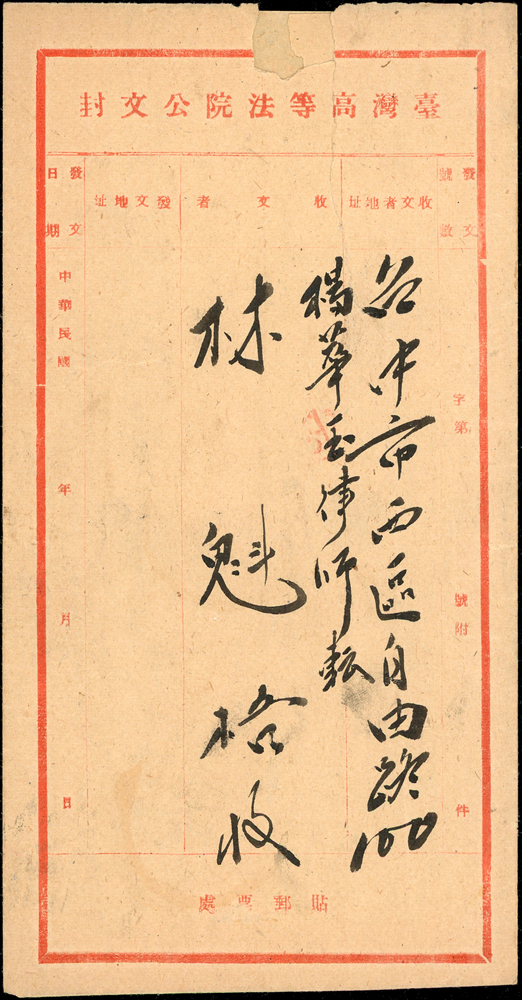 臺灣高等法院公文封
發文號數
字第
號附
件
收文者地址
收文者
發文地址
發文日期
中華民國
年
月
日
台中市西區自由路100
楊華玉律師転
林魁梧收
貼郵票處